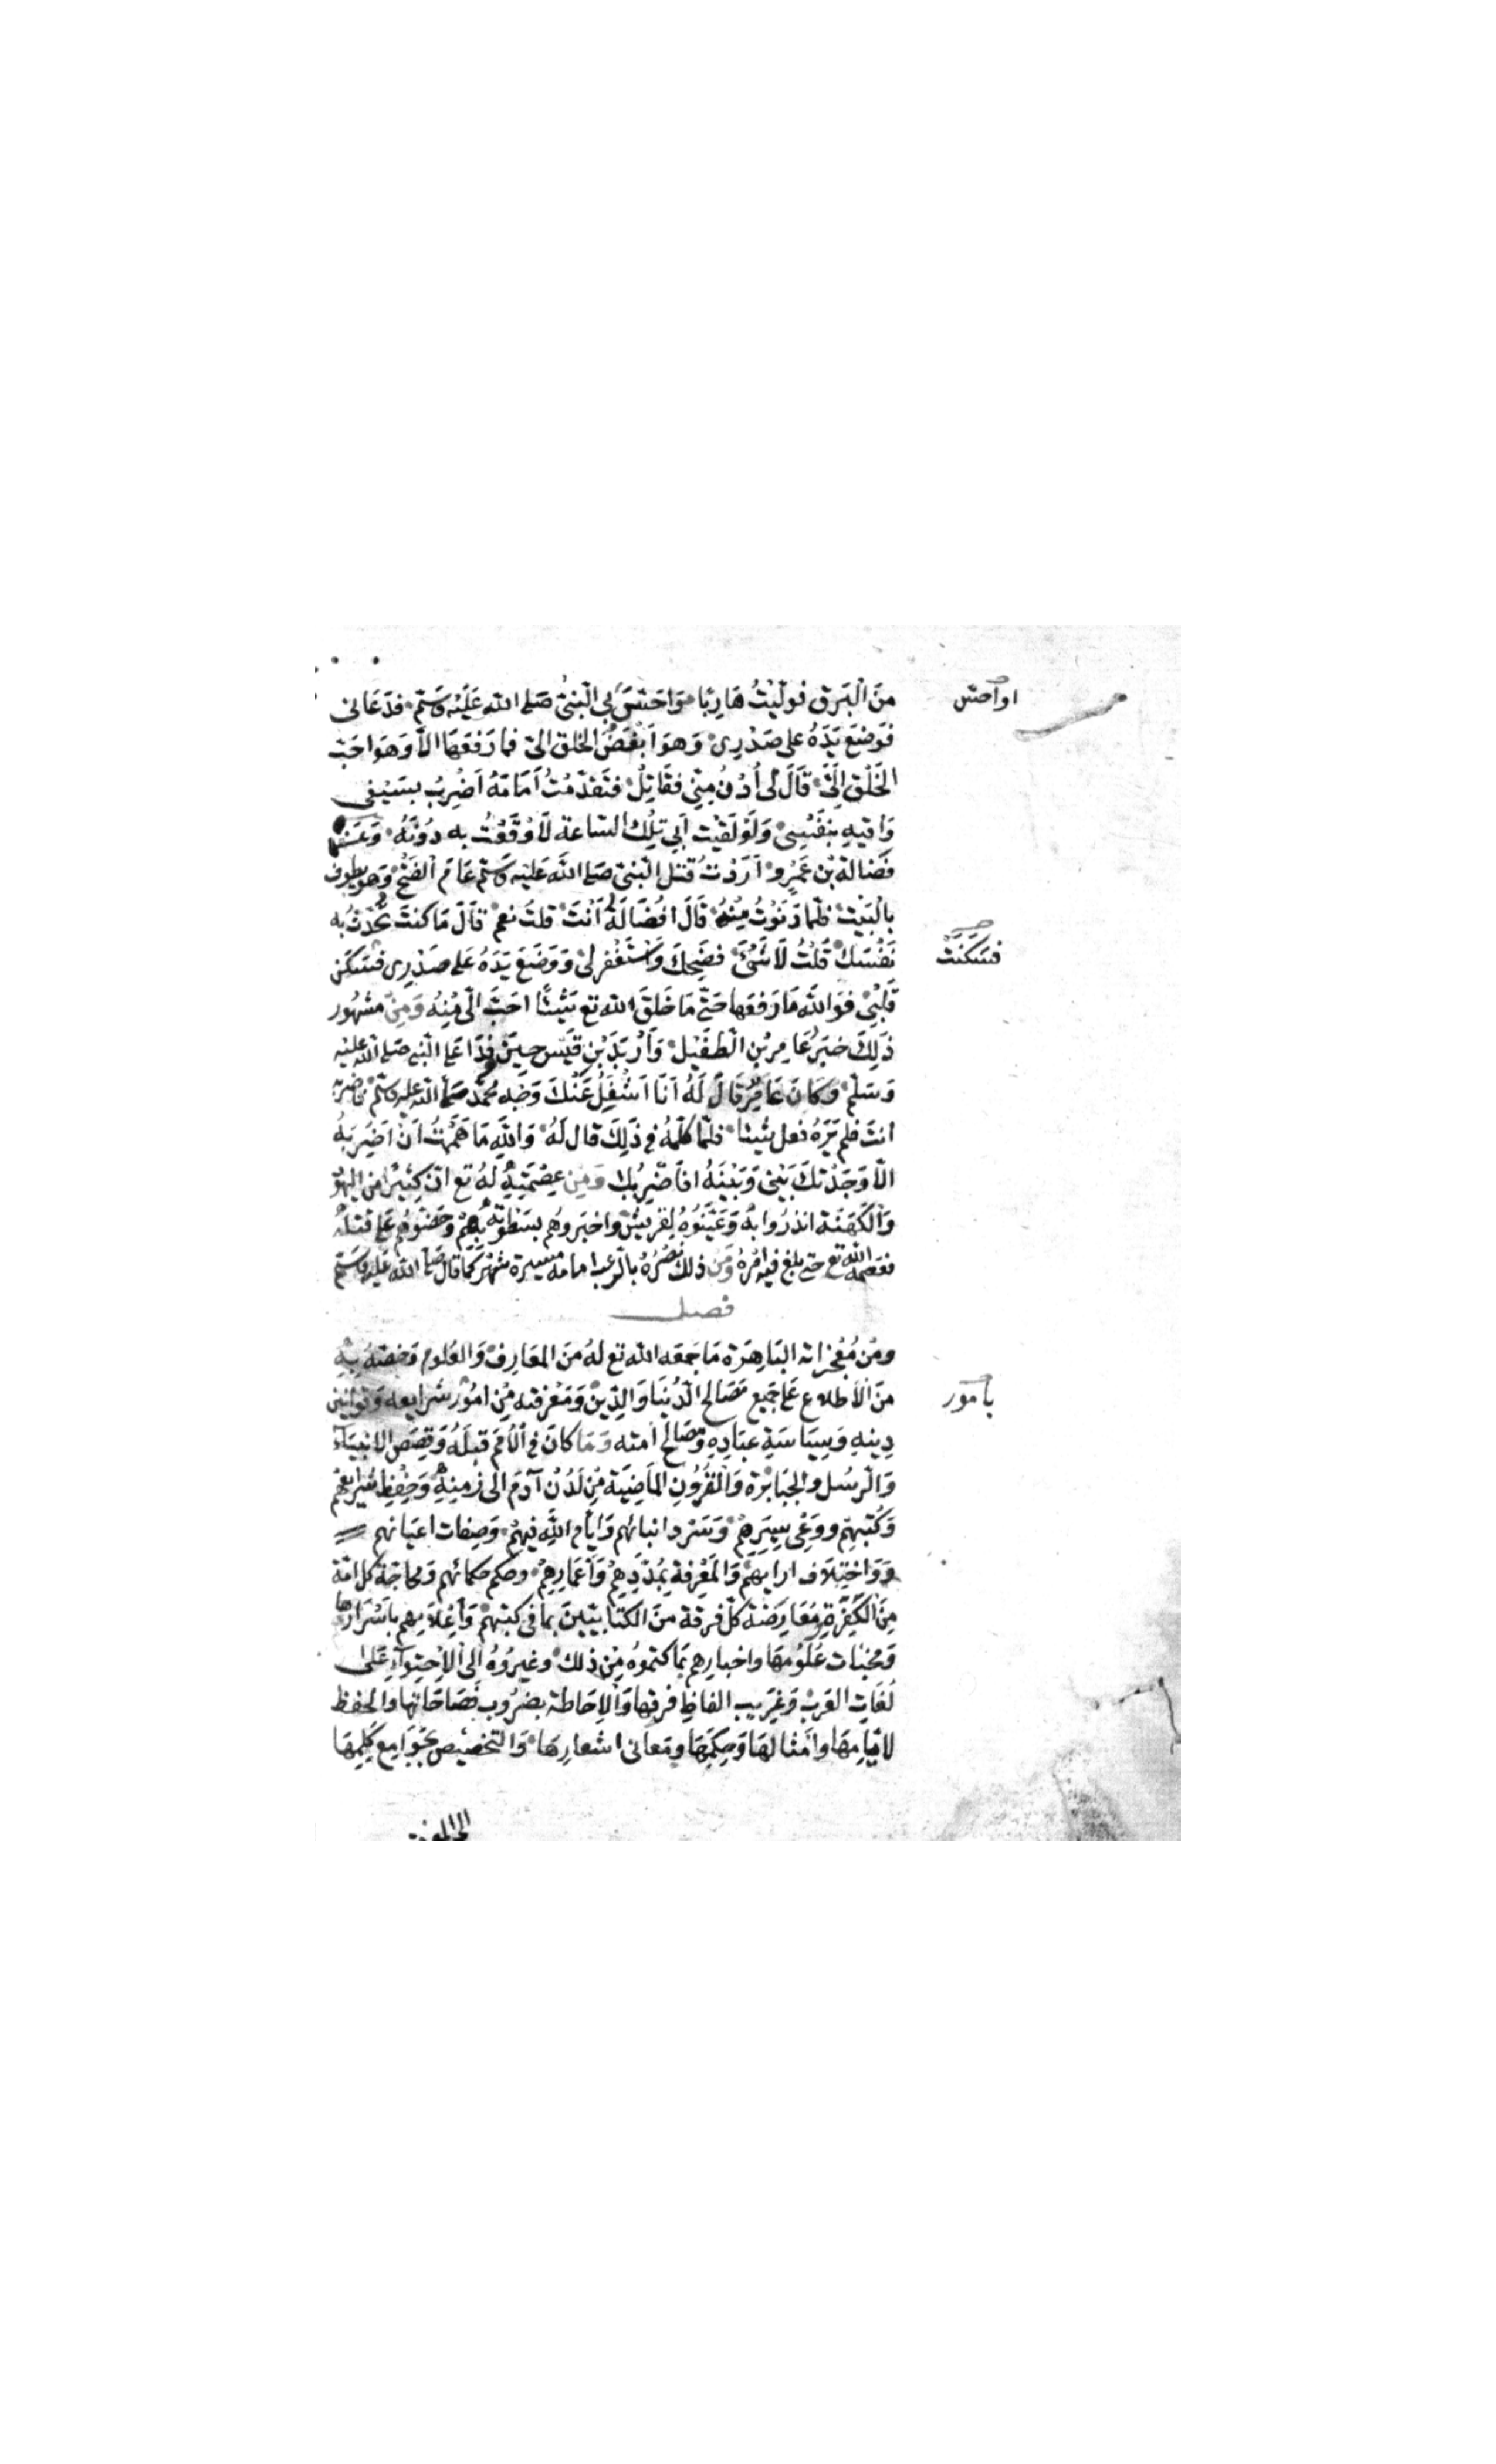 من البرق فوليت هاربا واحس بي النبي صلى الله عليه وسلم فدعاني
اواحس
فوضع يده على صدري وهو ابغض الخلق الي فما رفعها الا وهو احب
الخلق الي قال لي أدن مني فقاتل فتقدمت أمامه اضرب بسيفي
واقيه بنفسي ولو لقيت ابي تلك الساعة لأوقعت به دونه وعن
فضالة بن عمرو أردت قتل النبي صلى الله عليه وسلم عام الفتح وهو يطوف
بالبيت فلما دنوت منه قال افضالة انت قلت نعم قال ما كنت تحدث به
نفسك قلت لا شئ فضحك واستغفر لي ووضع يده على صدري فسكن
فسكنت
قلبي فوالله ما رفعها حتى ما خلق الله تع شيئا احب الي منه ومن مشهور
ذلك خبر عامر بن الطفيل وأربد بن قيس حين وفدا على النبي صلى الله عليه
وسلم وكان عامر قال له انا اشغل عنك وجه محمد صلى الله عليه وسلم فاضربه
انت فلم يره فعل شيئا فلما كلمه في ذلك قال له والله ما هممت أن اضربه
الا وجدتك بيني وبينه افاضربك ومن عصمته له تع ان كثيرا من اليهود
والكهنة انذروا به وعينوه لقريش واخبروهم بسطوته بهم وحضوهم على قتله
فعصمه الله تع حتى بلغ فيه امره ومن ذلك نصره بالرعب امامه مسيرة شهر كما قال صلى الله عليه وسلم
فصل
ومن معجزاته الباهرة ما جمعه الله تع له من المعارف والعلوم وخصه به
من الاطلاع على جميع مصالح الدنيا والدين ومعرفته من امور شرايعه وقوانين
بأمور
دينه وسياسة عباده ومصالح امته وما كان في الأمم قبله وقصص الانبياء
والرسل والجبابرة والقرون الماضية من لدن آدم الى زمنه وحفظ شرايعهم
وكتبهم ووعى سيرهم وسرد انبائهم وايام الله فيهم وصفات اعيانهم
وواختلاف ارايهم والمعرفة بمددهم وأعمارهم وحكم حكمائهم ومحاجة كل امة
من الكفرة ومعارضة كل فرقة من الكتابيين بما في كتبهم وأعلامهم بأسرارها
ومخبات علومها واخبارهم بما كتموه من ذلك وغيروه الى الاحتواء على
لغات العرب وغريب الفاظ فرقها والاحاطة بضروب فصاحاتها والحفظ
لايامها وامثالها وحكمها ومعاني اشعارها والتخصيص بجوامع كلمها